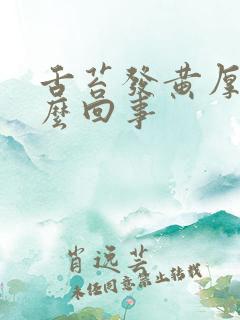 舌苔發黃厚
麼回事
肖远芸
未经同意禁止转载